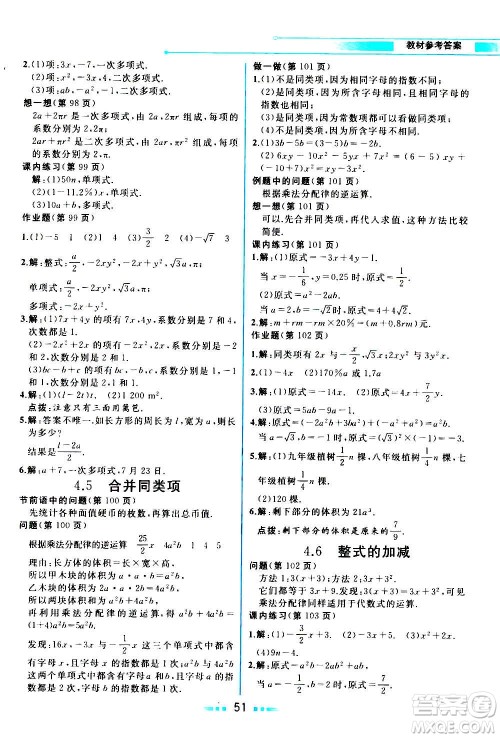 教材参考答案
2.(1)项:3x,-7,一次多项式.
(2)项:x²,-3x,4,二次多项式.
(3)项:ab,-a²,-1,二次多项式.
想一想(第98页)
2a+2πr是多项式,由2a,2πr两项组成,它们的系数分别为2,2π;
2ar+πr²是多项式,由2ar,πr²两项组成,它们的系数分别为2,π.
课内练习(第99页)
解:(1)50l,单项式.
(2)(1-11.2%)x,单项式.
作业题(第99页)
1.(1)-5 1 (2)1 4 (3)3/2 2 (4)-√7 3
2.解:整式:a/4,-2x²y³,√3a,-2x+y²,
单项式:a/4,-2x²y³,√3a;
多项式:-2x+y².
3.解:(1)7x+4y的项有7x,4y,系数分别是7和4,次数都是1.
(2)8x+10y的项有8x,10y,系数分别是8和10,次数都是1.
(3)bc-b²的项有bc,-b²,系数分别是1和-1,次数都是2.
4.解:(1)5t (2)t³ (3)t²
点拨:注意只有三面用篱笆.
5.解:答案不唯一.如长方形的周长为l,宽为a,则长为多少?
结果是(l-2a)/2.
6.解:a+7,一次多项式,7月23日.
4.5 合并同类项
节前语中的问题(第100页)
先统计各种面值硬币的枚数,再算出总币值.
问题(第100页)
根据乘法分配律的逆运算 25/2x 4a²b
理由:长方体的体积=长×宽×高,
所以甲木块的体积为a·a·b=a²b.
乙木块的体积为3a·a·b=3a²b.
再利用乘法分配律的逆运算得a²b+3a²b=(1+3)a²b=4a²b.
发现:16x,-3x,-1/2x这三个单项式中都含有字母x,且字母x的指数都是1.
a²b,3a²b这两个单项式都含有字母a,b,且字母a的指数都是2,字母b的指数都是1.
做一做(第101页)
1.(1)不是同类项,因为相同字母的指数不同;
(2)是同类项,因为相同字母的指数也相同;
(3)是同类项,因为常数项都可以看做同类项;
(4)不是同类项,因为所含字母不同.
2.(1)3b-5b=(3-5)b=-2b.
(2)6xy-10x²-5yx+7x²=xy-3x².
例题中的问题(第101页)
根据乘法分配律的逆运算.
想一想(第101页)
可以.先合并同类项,再代入求值,这种方法比较简便.
课内练习(第101页)
1.解:(1)原式=-3x+4y-1.
当x=1/6,y=0.25时,原式=-1/2.
(2)原式=a²-2ab.
2.解:m+m×20%=(m+0.2m)元.
作业题(第102页)
1.解:同类项有-2x与-x/2,√3x与x.
2.(1)-4x (2)170%a或1.7a
3.解:(1)原式=-4x.(2)原式=-4x+7/2y.
4.解:(1)原式=(2ab+3ba)+(-a²b+a²b)=5ab.
(2)原式=-ab.
5.解:(1)九年级植树1/2n棵,八年级植树1/4n棵.
(2)1000棵.
6.解:剩下部分的体积=21a³.
点拨:剩下部分的体积是原来的7/9.
4.6 整式的加减
问题(第102页)
方法1:3(x+3);方法2:3x+3².
它们都等于3x+9.因为3(x+3)=3x+9,可见乘法分配律同样适用于代数式的运算.
课内练习(第103页)
1.解:(1)-3/2x+1 (2)-x+5 (3)-2x+1
(4)9n-2m
2.解:(1)原式=2a²-2a²+a
=a.
51